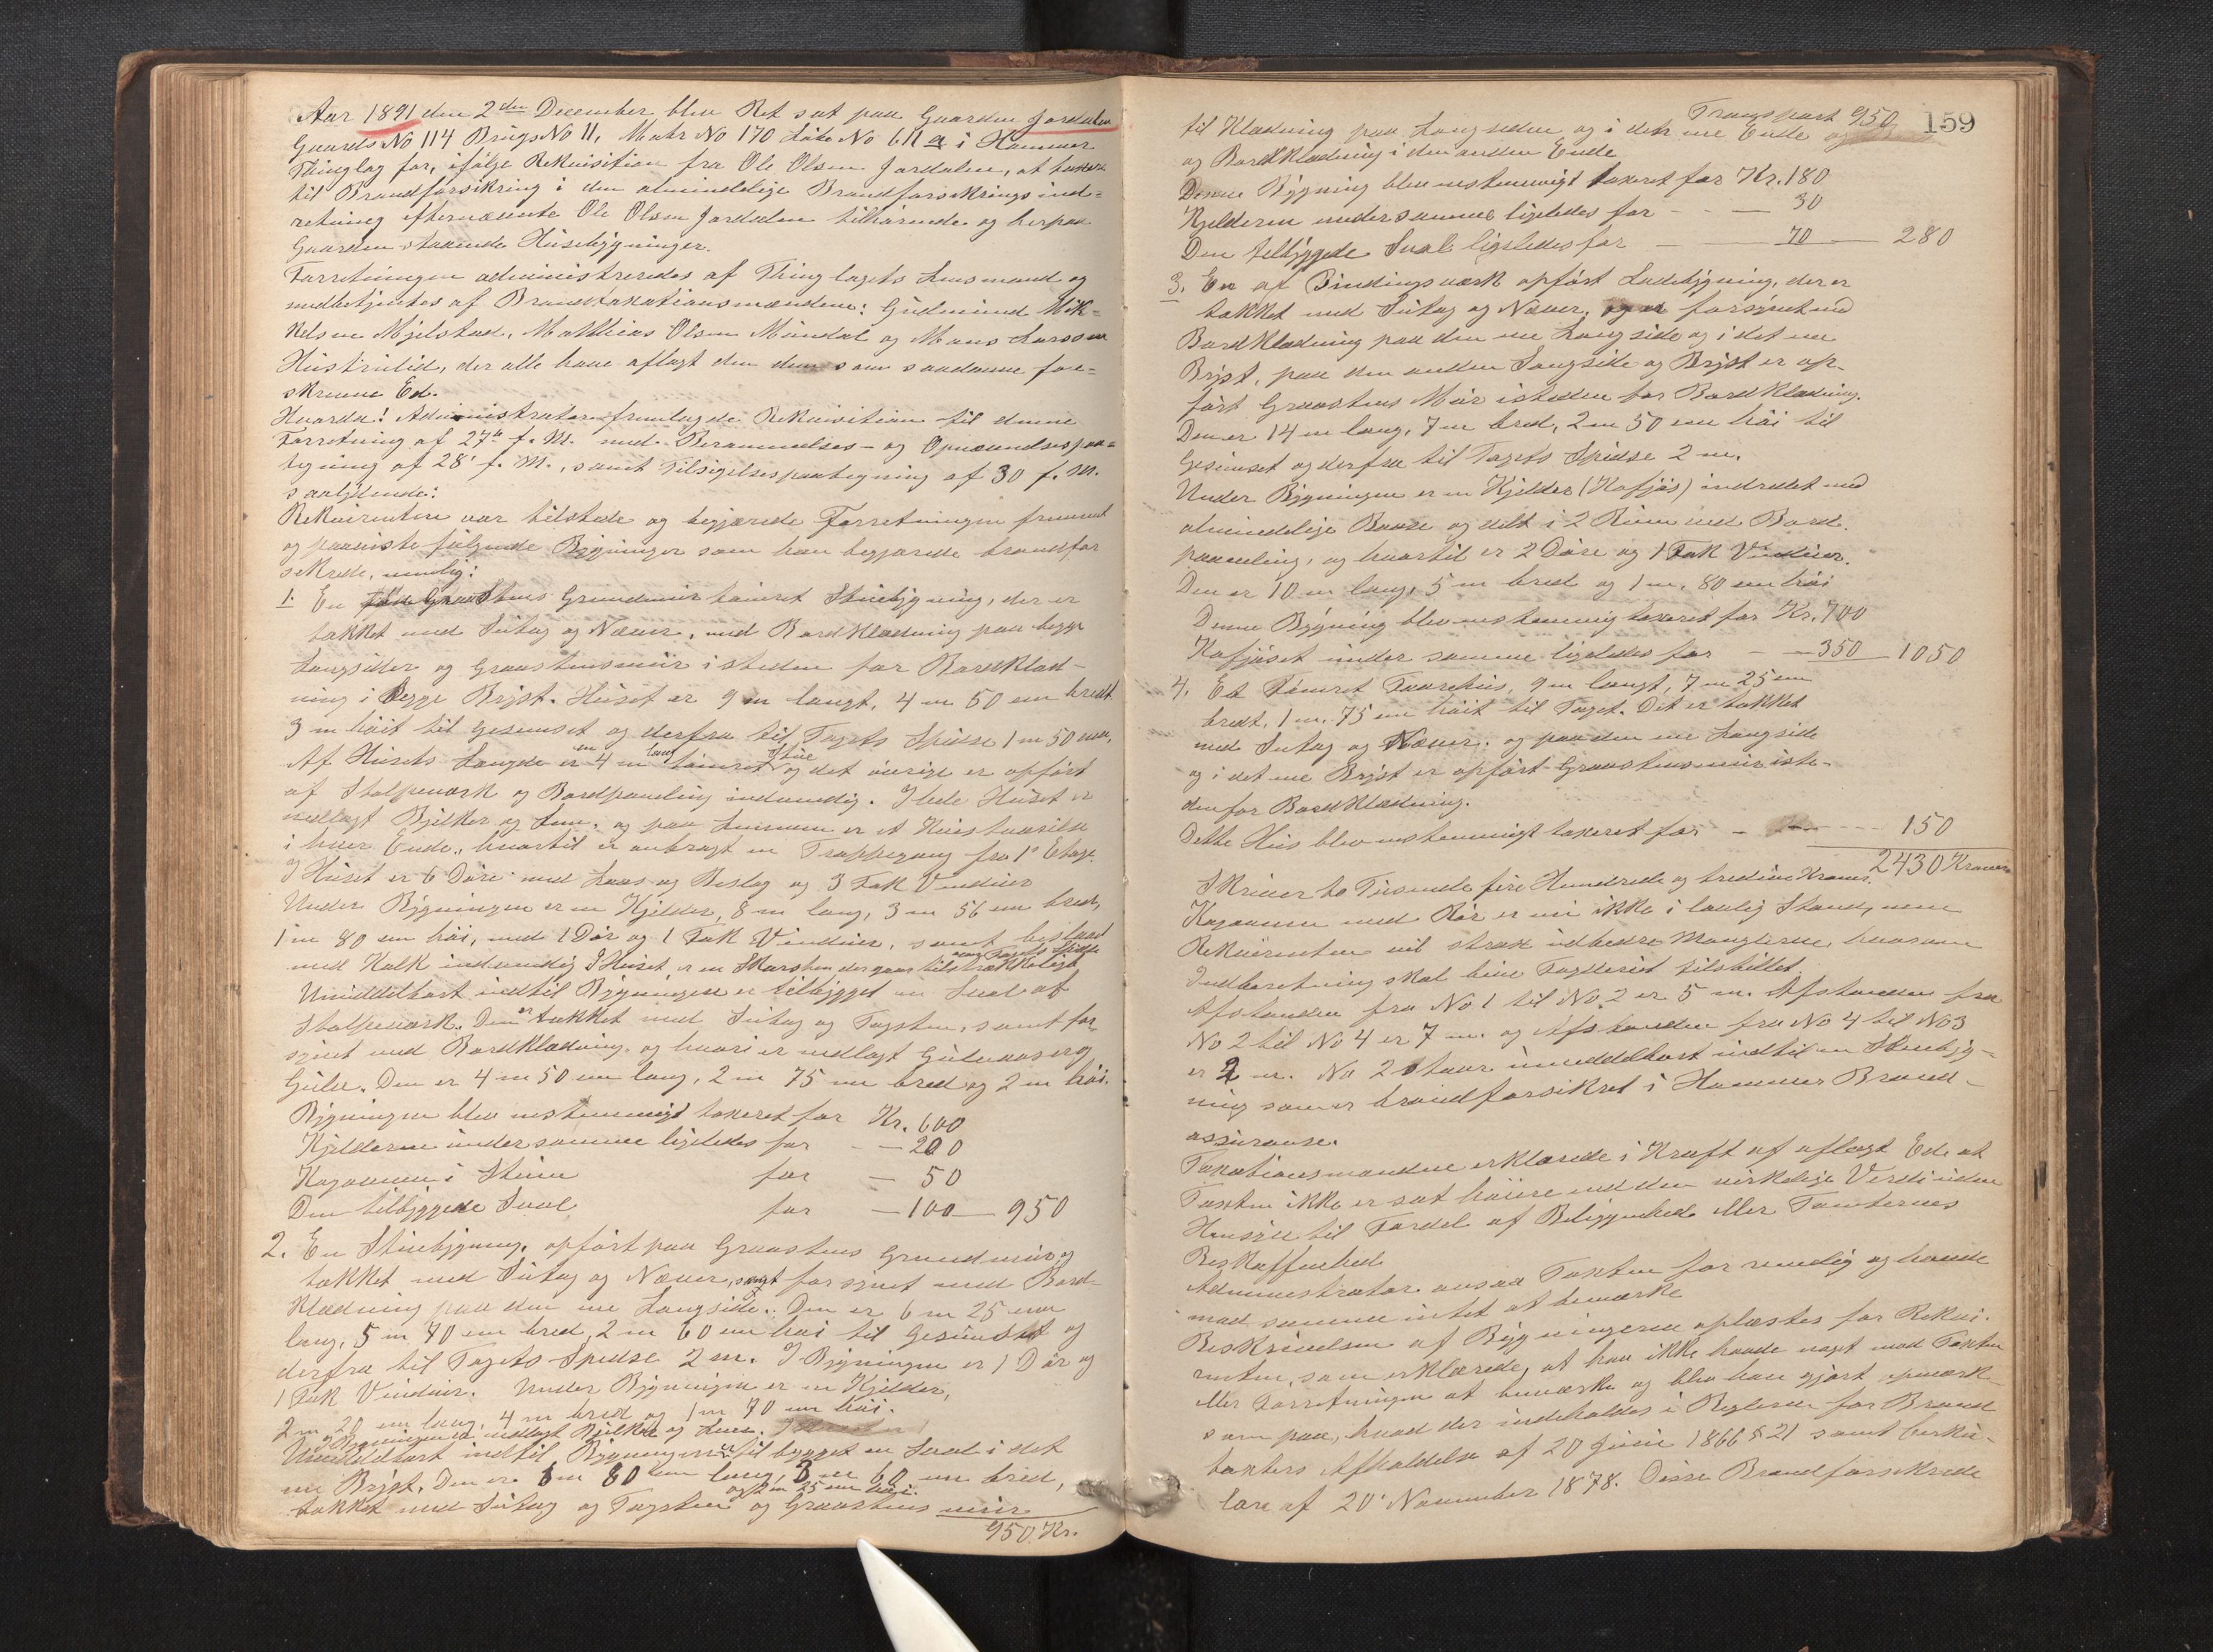 Aar 1891 den 2den December blev Ret sat paa Gaarden Jordalen
Gaards No 114 Brugs No 11, Matr No 170 Løbe No 611 a i Hammer
Thinglag for, ifølge Rekvisition fra Ole Olsen Jordalen, at taxere
til Brandforsikring i den almindelige Brandforsikringsind=
retning efternævnte Ole Olsen Jordalen tilhørende og herpaa
Gaarden staaende Husebygninger.
Forretningen administreredes af Thinglagets Lensmand og
medbetjentes af Brandtaxationsmændene: Gudmund Mik=
kelsen Mjelstad, Matthias Olsen Mundal og Mons Larssen
Hustrulid, der alle have aflagt den dem som saadanne fore=
skrevne Ed.
Hvorda! Administrator fremlagde Rekvisition til denne
Forretning af 27de f. M. med Berammelses- og Opnævnelsespaa=
tegning af 28' f. M., samt Tilsigelsespaategning af 30 f. M.
saalydende:
Rekvirenten var tilstede og begjærede Forretningen fremmet
og paaviste følgende Bygninger som han begjærede brandfor
sikrede, nemlig:
1. En Graastens Grundmur tømret Stuebygning, der er
tækket med Sutag og Næver, med Bordklædning paa begge
Langsider og Graastensmur isteden for Bordklæd-
ning i begge Bryst. Huset er 9 m langt, 4 m 50 cm bredt
3 m høit til Gesimset og derfra til Tagets Spidse 1 m 50 cm,
Af Husets Længde er en 4 m lang tømret Stue og det øvrige er opført
af Stolpeværk og Bordpaneling indvendig. I hele Huset er
nedlagt Bjelker og Lem, og paa Lemmen er et
i hver Ende, hvortil er anbragt en Trappegang fra 1' Etage.
I Huset er 6 Døre med Laas og Beslag og 3 Fak Vinduer
Under Bygningen er en Kjelder, 8 m lang, 3 m 56 cm bred,
1 m 80 cm høi, med 1 Dør og 1 Fak Vinduer, samt beslaaet
med Kalk indvendig I Huset er en Skorsten der gaar tilstrækkeligt over Tagets Spidse
Umiddelbart indtil Bygningen er tilbygget en Sval af
Stolpeværk. Den er tækket med Sutag og Tagsten, samt for-
synet med Bordklædning, og hvori er nedlagt Gulvaaser og
Gulv. Den er 4 m 50 cm lang, 2 m 75 cm bred og 2 m høi.
Bygningen blev enstemmigt taxeret for Kr. 600
Kjelderen under samme ligeledes for — 200
Kogovnen i Stuen for — 50
Den tilbyggede Sval for — 100 — 950
2. En Stuebygning, opført paa Graastens Grundmur og
tækket med Sutag og Næver, samt forsynet med Bord-
klædning paa den ene Langside. Den er 6 m 25 cm
lang, 5 m 70 cm bred, 2 m 60 cm høi til Gesimset og
derfra til Tagets Spidse 2 m. I Bygningen er 1 Dør og
1 Fak Vinduer. Under Bygningen er en Kjelder,
2 m 20 cm lang, 4 m bred og 1 m 70 cm høi.
I Bygningen er nedlagt Bjelker og Lem.
Umiddelbart indtil Bygningen er tilbygget en Sval i det
ene Bryst. Den er 5 m 80 cm lang, 3 m 60 cm bred,
og 2 m 25 cm høi.
tækket med Sutag og Tagsten og Graastens mur
950 Kr.
Transport 950 159
til Klædning paa Langsiden og i den ene Ende og
og Bordklædning i den anden Ende
Denne Bygning blev enstemmigt taxeret for Kr. 180
Kjelderen under samme ligeledes for — 30
Den tilbyggede Sval ligeledes for — 70 — 280
3. En af Bindingsværk opført Ladebygning, der er
tækket med Sutag og Næver, og er forsynet med
Bordklædning paa den ene Langside og i det ene
Bryst, paa den anden Langside og Bryst er op-
ført Graastens Mur isteden for Bordklædning.
Den er 14 m lang, 7 m bred, 2 m 50 cm høi til
Gesimset og derfra til Tagets Spidse 2 m.
Under Bygningen er en Kjelder (Kofjøs) indredet med
almindelige Baase og delt i 2 Rum med Bord-
paneling, og hvortil er 2 Døre og 1 Fak Vinduer.
Den er 10 m lang, 5 m bred og 1 m. 80 cm høi
Denne Bygning blev enstemmig taxeret for Kr. 700
Kofjøset under samme ligeledes for — 350 — 1050
4. Et tømret Faarehus, 9 m langt, 7 m 25 cm
bredt, 1 m. 75 cm høit til Taget. Det er tækket
med Sutag og Næver, og paa den ene Langside
og i det ene Bryst er opført Graastensmur iste-
denfor Bordklædning.
Dette Hus blev enstemmigt taxeret for — 150
2430 Kroner
Skriver to Tusende fire Hundrede og tredive Kroner.
Kogovnen med Rør er nu ikke i lovlig Stand, men
Rekvirenten vil strax udbedre Manglerne, hvorom
Indberetning skal blive Fogderiet tilstillet.
Afstanden fra No 1 til No 2 er 5 m. Afstanden fra
No 2 til No 4 er 7 m. og Afstanden fra No 4 til No 3
er 2 m. No 2 staar umiddelbart indtil en Stuebyg-
ning som er brandforsikret i Hammer Brand-
assurance.
Taxationsmændene erklærede i Kraft af aflagt Ed, at
Taxten ikke er sat høiere end den virkelige Verdi uden
Hensyn til Fordel af Beliggenhed eller Tomternes
Beskaffenhed
Administrator ansaa Taxten for rimelig og havde
mod samme intet at bemærke
Beskrivelsen af Bygningerne oplæstes for Rekvi-
renten, som erklærede, at han ikke havde noget mod Taxten
eller Forretningen at bemærke og blev han gjort opmærk-
som paa, hvad der indeholdes i Reglerne for Brand
taxters Afholdelse af 20 Juni 1866 § 21 samt Cirku-
lære af 20' November 1878. Disse Brandforsikrede